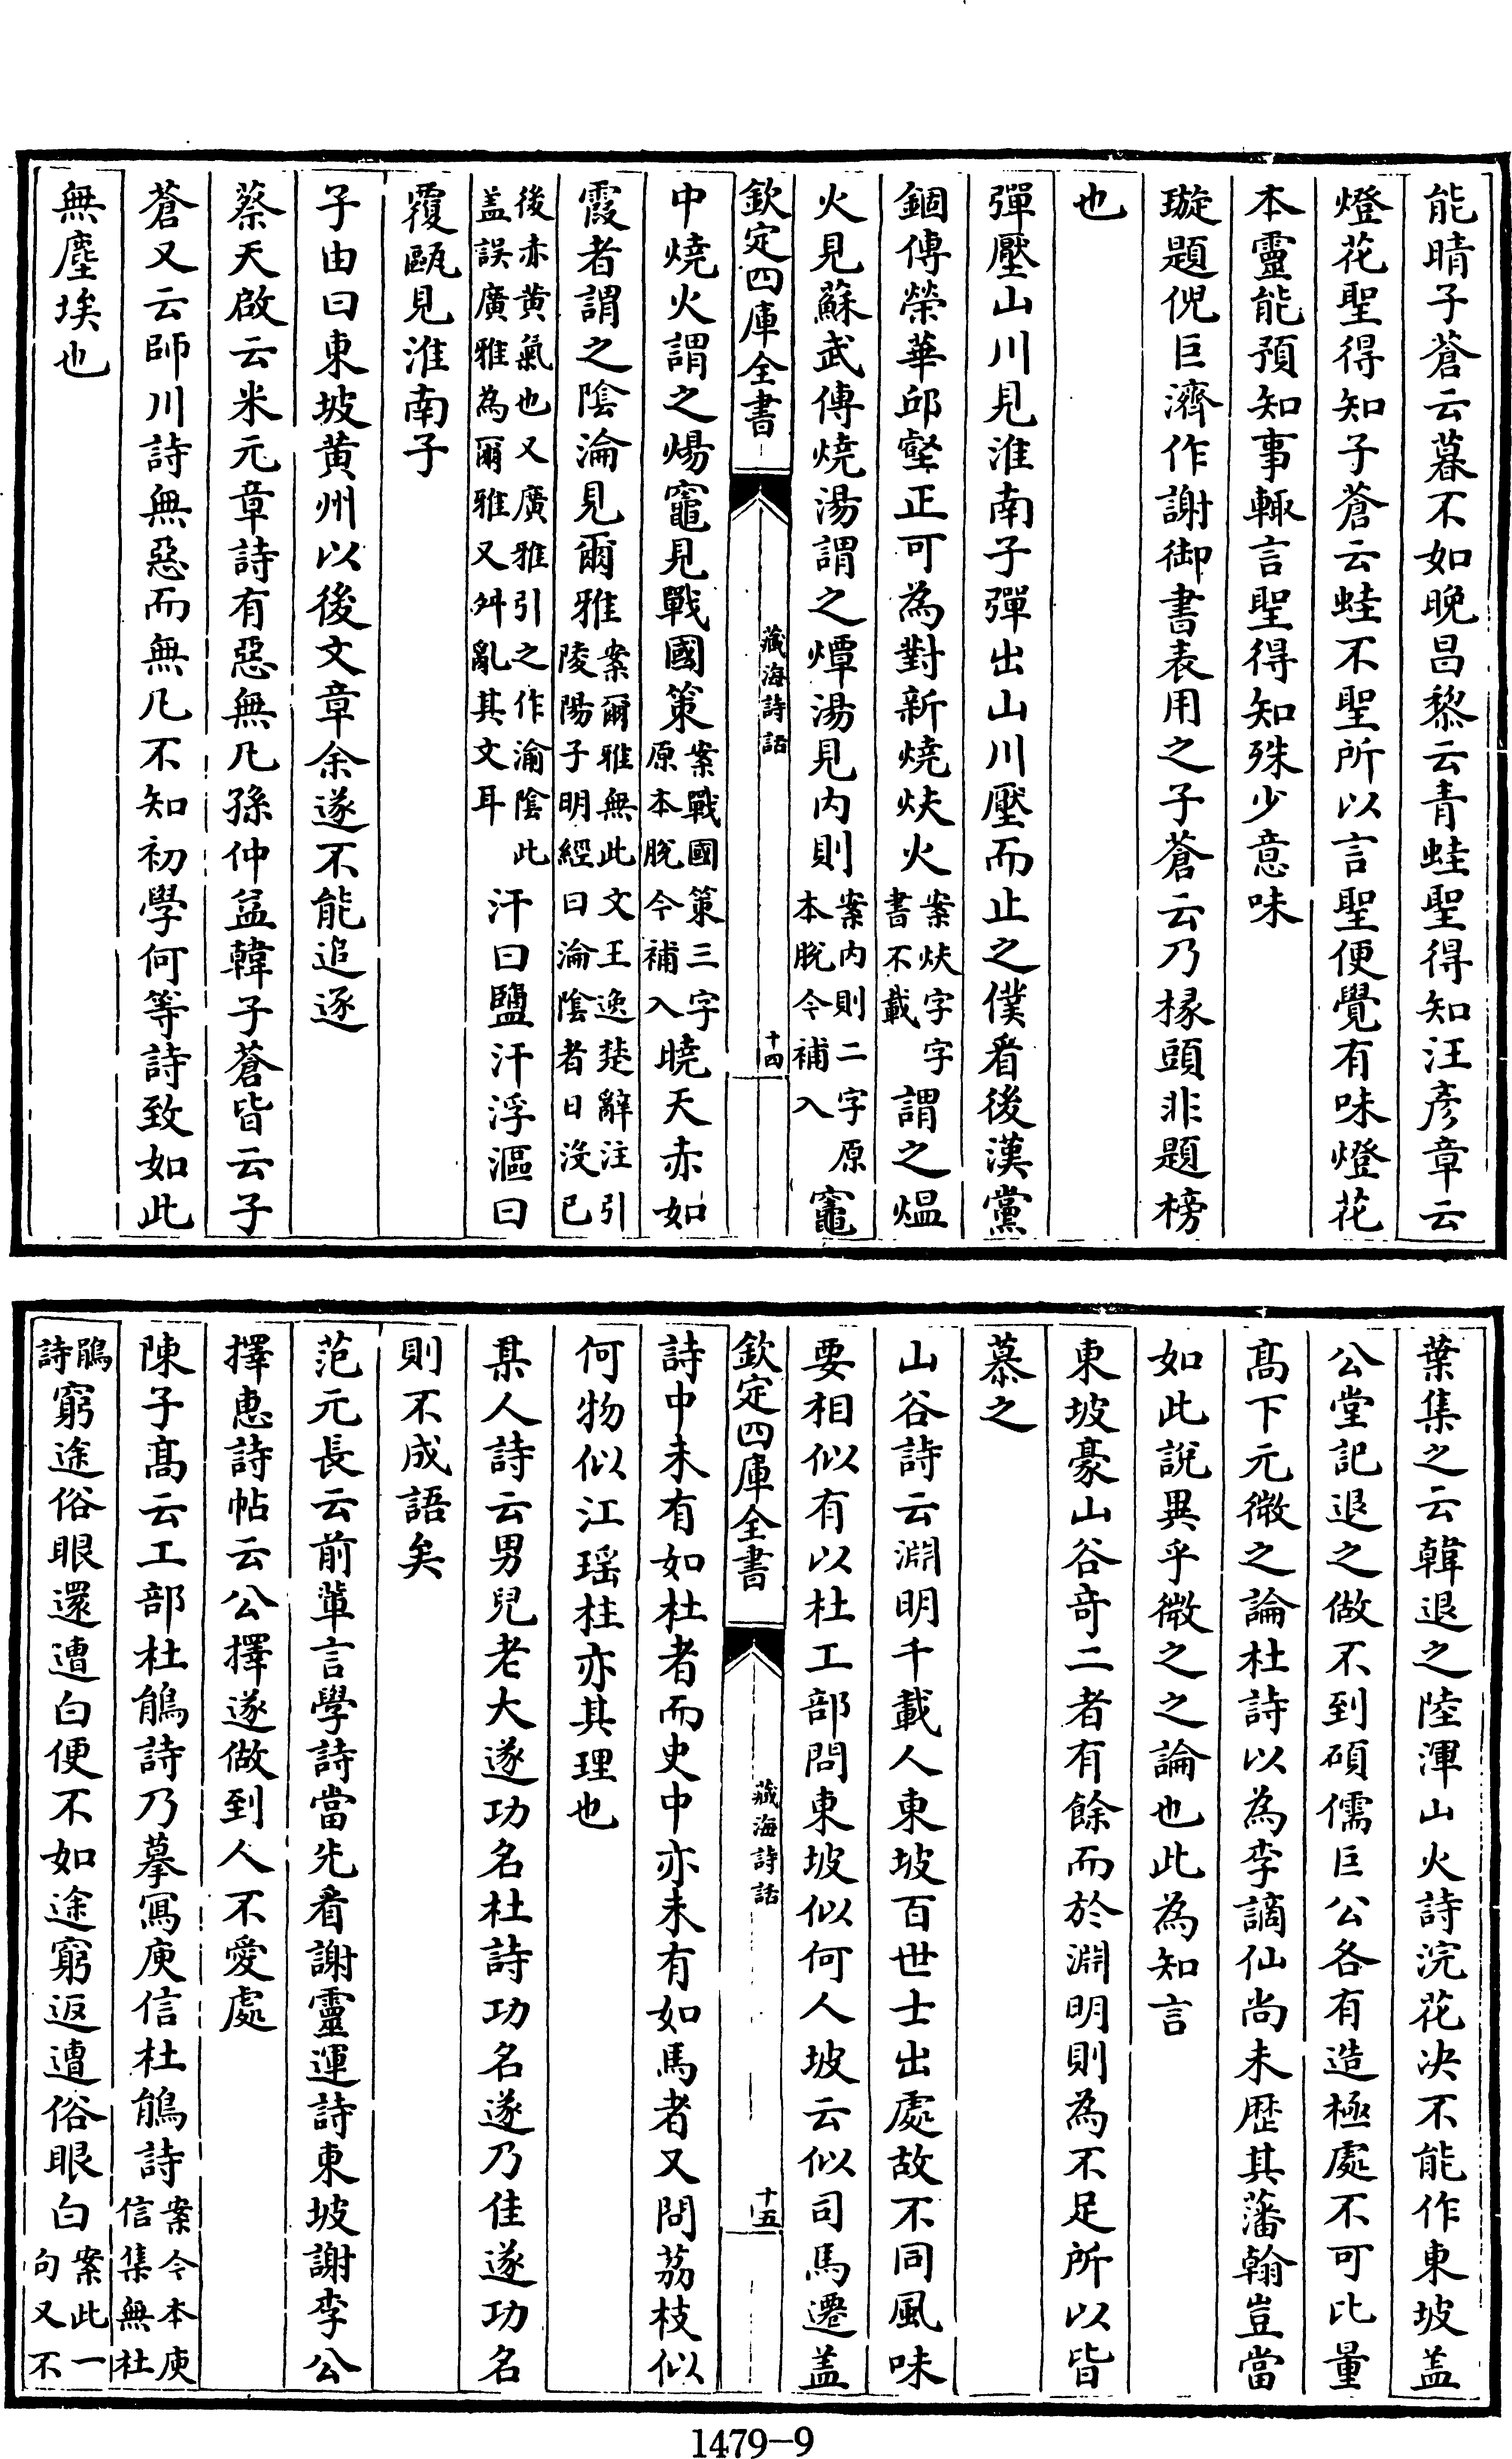 能晴子蒼云暮不如晚昌黎云青蛙聖得知汪彦章云
燈花聖得知子蒼云蛙不聖所以言聖便覺有味燈花
本靈能預知事輙言聖得知殊少意味
璇題倪巨濟作謝御書表用之子蒼云乃椽頭非題榜
也
彈壓山川見淮南子彈出山川壓而止之僕看後漢黨
錮傳榮華邱壑正可為對新燒炗火案炗字字書不載謂之煴
火見蘇武傳燒湯謂之燂湯見内則案内則二字原本脱今補入竈
欽定四庫全書
藏海詩話
十四
中燒火謂之煬竈見戰國策案戰國策三字原本脱今補入曉天赤如
霞者謂之陰淪見爾雅案爾雅無此文王逸楚辭注引陵陽子明經曰淪陰者日没已
後赤黄氣也又廣雅引之作渝陰此盖誤廣雅為爾雅又舛亂其文耳汗曰鹽汗浮漚曰
覆甌見淮南子
子由曰東坡黄州以後文章余遂不能追逐
蔡天啟云米元章詩有惡無凡孫仲益韓子蒼皆云子
蒼又云師川詩無惡而無凡不知初學何等詩致如此
無塵埃也
葉集之云韓退之陸渾山火詩浣花决不能作東坡盖
公堂記退之做不到碩儒巨公各有造極處不可比量
髙下元微之論杜詩以為李謫仙尚未歴其藩翰豈當
如此說異乎微之之論也此為知言
東坡豪山谷竒二者有餘而於淵明則為不足所以皆
慕之
山谷詩云淵明千載人東坡百世士出處故不同風味
要相似有以杜工部問東坡似何人坡云似司馬遷盖
欽定四庫全書
藏海詩話
十五
詩中未有如杜者而史中亦未有如馬者又問荔枝似
何物似江瑶柱亦其理也
某人詩云男兒老大遂功名杜詩功名遂乃佳遂功名
則不成語矣
范元長云前輩言學詩當先看謝靈運詩東坡謝李公
擇惠詩帖云公擇遂做到人不愛處
陳子髙云工部杜鵑詩乃摹寫庾信杜鵑詩案今本庾信集無杜
鵑詩窮途俗眼還遭白便不如途窮返遭俗眼白案此一句又不
1479—9